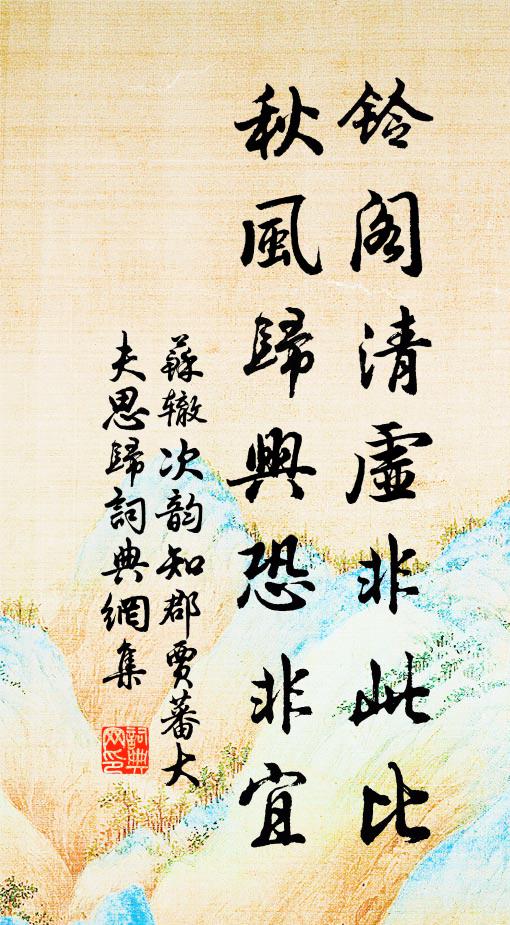 鈴閣清虛非此比
秋風歸興恐非宜
蘇辙次韵知郡賈蕃大
夫思歸詞典網集
詞典
网印